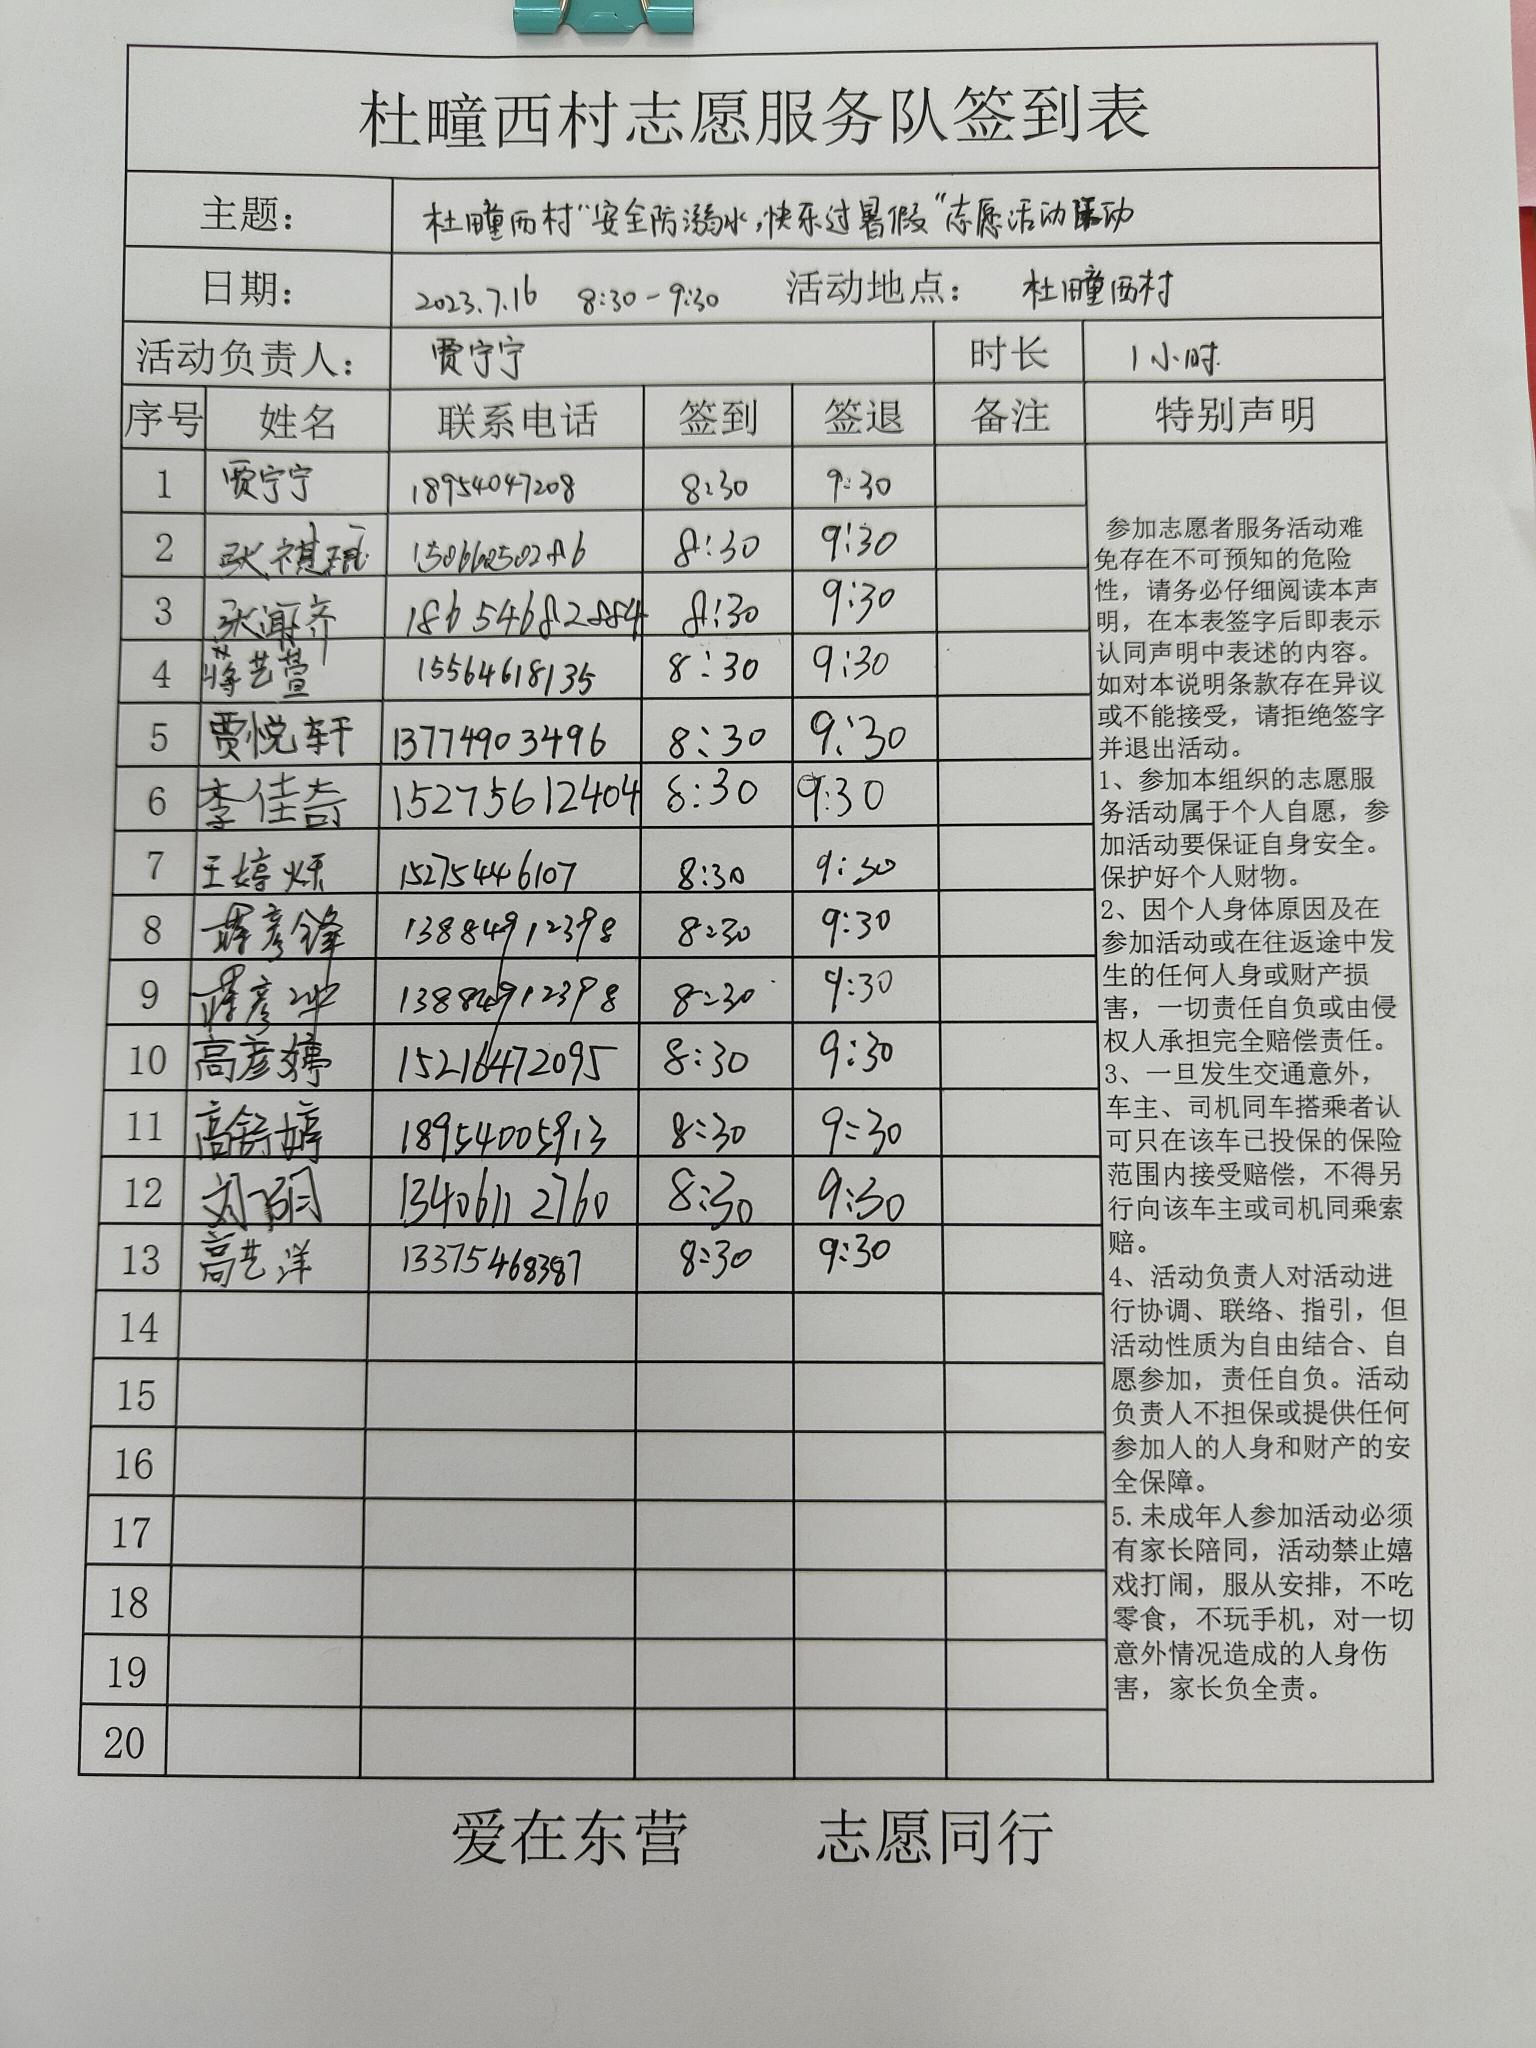 杜疃西村志愿服务队签到表
主题： 杜疃西村“安全防溺水，快乐过暑假”志愿活动 活动
日期： 2023.7.16 8:30-9:30 活动地点： 杜疃西村
活动负责人： 贾宁宁 时长 1小时
序号 姓名 联系电话 签到 签退 备注 特别声明
1 贾宁宁 18954047208 8:30 9:30
2 8:30 9:30
3 18654682884 8:30 9:30
4 蒋艺萱 15564618135 8:30 9:30
5 贾悦轩 13774903496 8:30 9:30
6 李佳奇 15275612404 8:30 9:30
7 王婷 15275446107 8:30 9:30
8 薛彦锋 13884912398 8:30 9:30
9 薛彦 13884912398 8:30 9:30
10 高彦婷 15216472095 8:30 9:30
11 高舒婷 18954005913 8:30 9:30
12 刘 13406112760 8:30 9:30
13 高艺洋 13375468387 8:30 9:30
14
15
16
17
18
19
20
参加志愿者服务活动难
免存在不可预知的危险
性，请务必仔细阅读本声
明，在本表签字后即表示
认同声明中表述的内容。
如对本说明条款存在异议
或不能接受，请拒绝签字
并退出活动。
1、参加本组织的志愿服
务活动属于个人自愿，参
加活动要保证自身安全。
保护好个人财物。
2、因个人身体原因及在
参加活动或在往返途中发
生的任何人身或财产损
害，一切责任自负或由侵
权人承担完全赔偿责任。
3、一旦发生交通意外，
车主、司机同车搭乘者认
可只在该车已投保的保险
范围内接受赔偿，不得另
行向该车主或司机同乘索
赔。
4、活动负责人对活动进
行协调、联络、指引，但
活动性质为自由结合、自
愿参加，责任自负。活动
负责人不担保或提供任何
参加人的人身和财产的安
全保障。
5.未成年人参加活动必须
有家长陪同，活动禁止嬉
戏打闹，服从安排，不吃
零食，不玩手机，对一切
意外情况造成的人身伤
害，家长负全责。
爱在东营 志愿同行